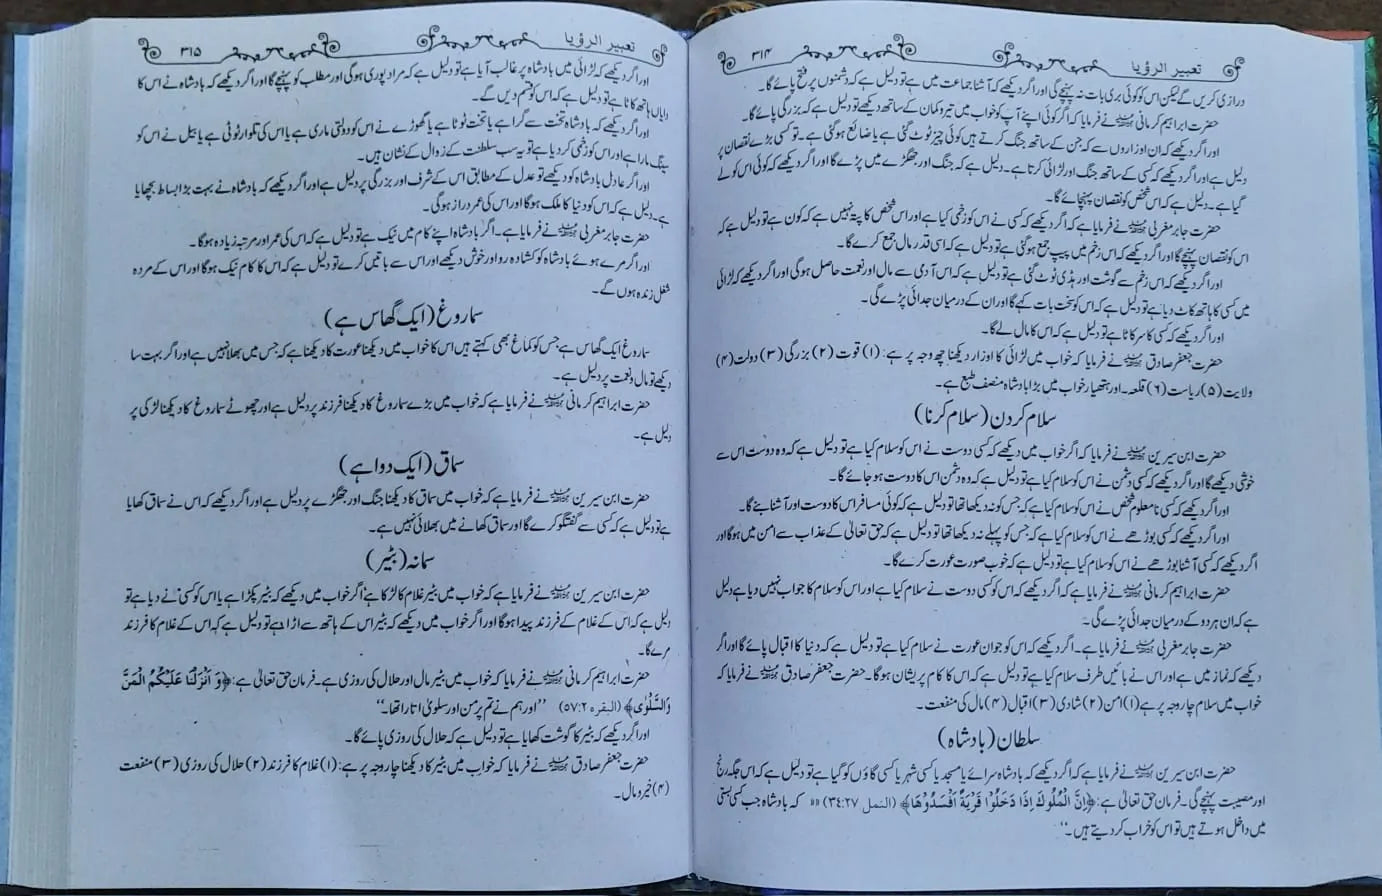 تعبیر الرؤیا
۳۱۴
درازی کریں گے لیکن اس کو کوئی بری بات نہ پہنچے گی اور اگر دیکھے کہ آشنا جماعت میں ہے تو دلیل ہے کہ دشمنوں پر فتح پائے گا۔
حضرت ابراہیم کرمانی رحمۃ اللہ علیہ نے فرمایا کہ اگر کوئی اپنے آپ کو خواب میں تیر و کمان کے ساتھ دیکھے تو دلیل ہے کہ بزرگی پائے گا۔
اور اگر دیکھے کہ ان اوزاروں سے کہ جن کے ساتھ جنگ کرتے ہیں کوئی چیز ٹوٹ گئی ہے یا ضائع ہو گئی ہے۔ تو کسی بڑے نقصان پر
دلیل ہے اور اگر دیکھے کہ کسی کے ساتھ جنگ اور لڑائی کرتا ہے۔ دلیل ہے کہ جنگ اور جھگڑے میں پڑے گا اور اگر دیکھے کہ کوئی اس کو لے
گیا ہے۔ دلیل ہے کہ اس شخص کو نقصان پہنچائے گا۔
حضرت جابر مغربی رحمۃ اللہ علیہ نے فرمایا ہے کہ اگر دیکھے کہ کسی نے اس کو زخمی کیا ہے اور اس شخص کا پتہ نہیں ہے کہ کون ہے تو دلیل ہے کہ
اس کو نقصان پہنچے گا اور اگر دیکھے کہ اس زخم میں پیپ جمع ہو گئی ہے تو دلیل ہے کہ اسی قدر مال جمع کرے گا۔
اور اگر دیکھے کہ اس زخم سے گوشت اور ہڈی ٹوٹ گئی ہے تو دلیل ہے کہ اس آدمی سے مال اور نعمت حاصل ہو گی اور اگر دیکھے کہ لڑائی
میں کسی کا ہاتھ کاٹ دیا ہے تو دلیل ہے کہ اس کو سخت بات کہے گا اور ان کے درمیان جدائی پڑے گی۔
اور اگر دیکھے کہ کسی کا سر کاٹا ہے تو دلیل ہے کہ اس کا مال لے گا۔
حضرت جعفر صادق رحمۃ اللہ علیہ نے فرمایا کہ خواب میں لڑائی کا اوزار دیکھنا چھ وجہ پر ہے: (۱) قوت (۲) بزرگی (۳) دولت (۴)
ولایت (۵) ریاست (۶) قلعہ۔ اور ہتھیار خواب میں بڑا بادشاہ منصف طبع ہے۔
سلام کردن (سلام کرنا)
حضرت ابن سیرین رحمۃ اللہ علیہ نے فرمایا کہ اگر خواب میں دیکھے کہ کسی دوست نے اس کو سلام کیا ہے تو دلیل ہے کہ وہ دوست اس سے
خوشی دیکھے گا اور اگر دیکھے کہ کسی دشمن نے اس کو سلام کیا ہے تو دلیل ہے کہ وہ دشمن اس کا دوست ہو جائے گا۔
اور اگر دیکھے کہ کسی نامعلوم شخص نے اس کو سلام کیا ہے کہ جس کو نہ دیکھا تھا تو دلیل ہے کہ کوئی مسافر اس کا دوست اور آشنا بنے گا۔
اور اگر دیکھے کہ کسی بوڑھے نے اس کو سلام کیا ہے کہ جس کو پہلے نہ دیکھا تھا تو دلیل ہے کہ حق تعالیٰ کے عذاب سے امن میں ہو گا اور
اگر دیکھے کہ کسی آشنا بوڑھے نے اس کو سلام کیا ہے تو دلیل ہے کہ خوب صورت عورت کرے گا۔
حضرت ابراہیم کرمانی رحمۃ اللہ علیہ نے فرمایا ہے کہ اگر دیکھے کہ اس کو کسی دوست نے سلام کیا ہے اور اس کو سلام کا جواب نہیں دیا ہے دلیل
ہے کہ ان ہر دو کے درمیان جدائی پڑے گی۔
حضرت جابر مغربی رحمۃ اللہ علیہ نے فرمایا ہے۔ اگر دیکھے کہ اس کو جوان عورت نے سلام کیا ہے تو دلیل ہے کہ دنیا کا اقبال پائے گا اور اگر
دیکھے کہ نماز میں ہے اور اس نے بائیں طرف سلام کیا ہے تو دلیل ہے کہ اس کا کام پریشان ہو گا۔ حضرت جعفر صادق رحمۃ اللہ علیہ نے فرمایا کہ
خواب میں سلام چار وجہ پر ہے (۱) امن (۲) شادی (۳) اقبال (۴) مال کی منفعت۔
سلطان (بادشاہ)
حضرت ابن سیرین رحمۃ اللہ علیہ نے فرمایا ہے کہ اگر دیکھے کہ بادشاہ سرائے یا مسجد یا کسی شہر یا کسی گاؤں کو گیا ہے تو دلیل ہے کہ اس جگہ رنج
اور مصیبت پہنچے گی۔ فرمان حق تعالیٰ ہے: ﴿اِنَّ الْمُلُوْكَ اِذَا دَخَلُوْا قَرْیَةً اَفْسَدُوْهَا﴾ (النمل ۳۴:۲۷) ”کہ بادشاہ جب کسی بستی
میں داخل ہوتے ہیں تو اس کو خراب کر دیتے ہیں۔“
تعبیر الرؤیا
۳۱۵
اور اگر دیکھے کہ لڑائی میں بادشاہ پر غالب آیا ہے تو دلیل ہے کہ مراد پوری ہو گی اور مطلب کو پہنچے گا اور اگر دیکھے کہ بادشاہ نے اس کا
دایاں ہاتھ کاٹا ہے تو دلیل ہے کہ اس کو قسم دیں گے۔
اور اگر دیکھے کہ بادشاہ تخت سے گرا ہے یا تخت ٹوٹا ہے یا گھوڑے نے اس کو دولتی ماری ہے یا اس کی تلوار ٹوٹی ہے یا بیل نے اس کو
سینگ مارا ہے اور اس کو زخمی کر دیا ہے تو یہ سب سلطنت کے زوال کے نشان ہیں۔
اور اگر عادل بادشاہ کو دیکھے تو عدل کے مطابق اس کے شرف اور بزرگی پر دلیل ہے اور اگر دیکھے کہ بادشاہ نے بہت بڑا بساط بچھایا
ہے۔ دلیل ہے کہ اس کو دنیا کا ملک ہو گا اور اس کی عمر دراز ہو گی۔
حضرت جابر مغربی رحمۃ اللہ علیہ نے فرمایا ہے۔ اگر بادشاہ اپنے کام میں نیک ہے تو دلیل ہے کہ اس کی عمر اور مرتبہ زیادہ ہو گا۔
اور اگر مرے ہوئے بادشاہ کو کشادہ رو اور خوش دیکھے اور اس سے باتیں کرے تو دلیل ہے کہ اس کا کام نیک ہو گا اور اس کے مردہ
شغل زندہ ہوں گے۔
سماروغ (ایک گھاس ہے)
سماروغ ایک گھاس ہے جس کو کماغ بھی کہتے ہیں اس کا خواب میں دیکھنا عورت کا دیکھنا ہے کہ جس میں بھلا نہیں ہے اور اگر بہت سا
دیکھے تو مال و نعمت پر دلیل ہے۔
حضرت ابراہیم کرمانی رحمۃ اللہ علیہ نے فرمایا ہے کہ خواب میں بڑے سماروغ کا دیکھنا فرزند پر دلیل ہے اور چھوٹے سماروغ کا دیکھنا لڑکی پر
دلیل ہے۔
سماق (ایک دوا ہے)
حضرت ابن سیرین رحمۃ اللہ علیہ نے فرمایا ہے کہ خواب میں سماق کا دیکھنا جنگ اور جھگڑے پر دلیل ہے اور اگر دیکھے کہ اس نے سماق کھایا
ہے تو دلیل ہے کہ کسی سے گفتگو کرے گا اور سماق کھانے میں بھلائی نہیں ہے۔
سمانہ (بٹیر)
حضرت ابن سیرین رحمۃ اللہ علیہ نے فرمایا ہے کہ خواب میں بٹیر غلام کا لڑکا ہے اگر خواب میں دیکھے کہ بٹیر پکڑا ہے یا اس کو کسی نے دیا ہے تو
دلیل ہے کہ اس کے غلام کے فرزند پیدا ہو گا اور اگر خواب میں دیکھے کہ بٹیر اس کے ہاتھ سے اڑا ہے تو دلیل ہے کہ اس کے غلام کا فرزند
مرے گا۔
حضرت ابراہیم کرمانی رحمۃ اللہ علیہ نے فرمایا کہ خواب میں بٹیر مال اور حلال کی روزی ہے۔ فرمان حق تعالیٰ ہے: ﴿وَ اَنْزَلْنَا عَلَیْكُمُ الْمَنَّ
وَالسَّلْوٰی﴾ (البقرہ ۵۷:۲) ”اور ہم نے تم پر من اور سلویٰ اتارا تھا۔“
اور اگر دیکھے کہ بٹیر کا گوشت کھایا ہے تو دلیل ہے کہ حلال کی روزی پائے گا۔
حضرت جعفر صادق رحمۃ اللہ علیہ نے فرمایا کہ خواب میں بٹیر کا دیکھنا چار وجہ پر ہے: (۱) غلام کا فرزند (۲) حلال کی روزی (۳) منفعت
(۴) خیر و مال۔